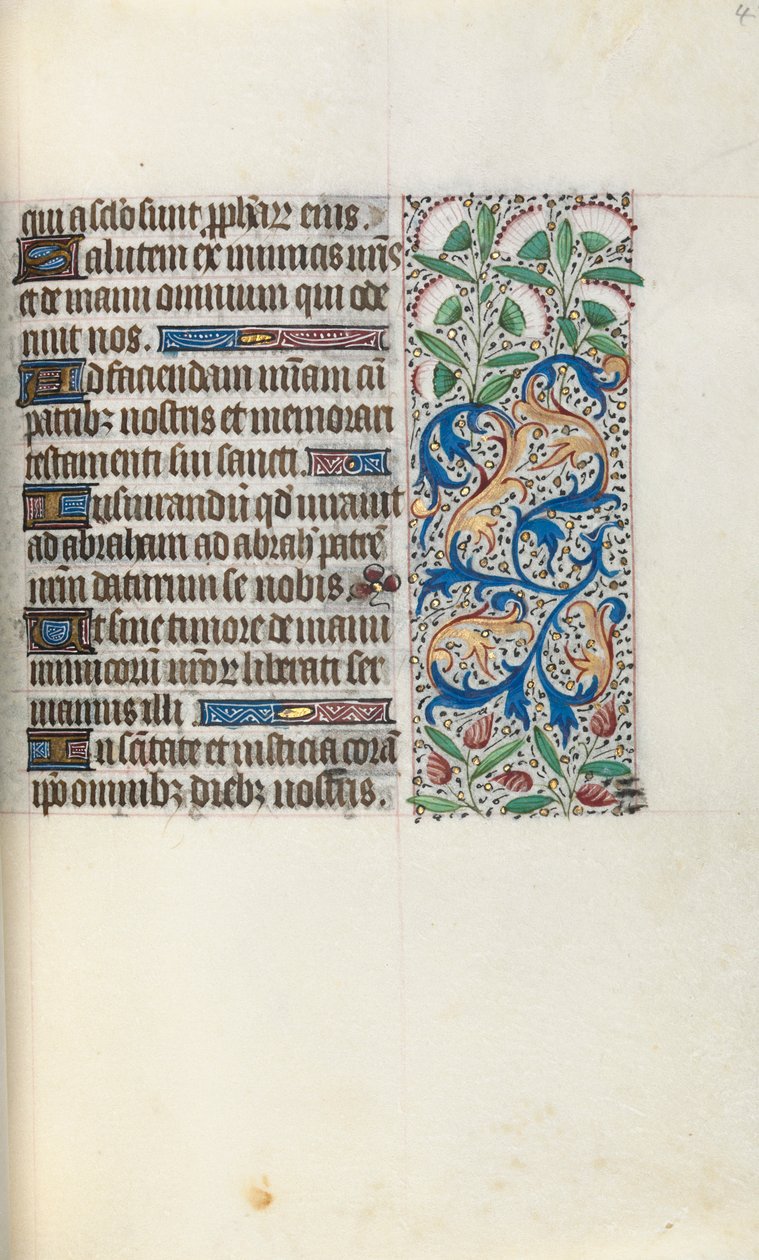 4
qui a sclo sunt pphaꝝ eius.
Salutem ex inimicis nr̄is
et de manu omnium qui ode
runt nos.
Ad faciendam mīam cū
patribꝫ nostris et memorari
testamenti sui sancti.
Iusiurandū qd̓ iurauit
ad abraham ad abrah̓ patrē
nrm̄ daturum se nobis.
Ut sine timore de manu
inimicorū nrōꝝ liberati ser
uiamus illi
In scītate et iusticia corā
ipo omnibꝫ diebꝫ nostris.